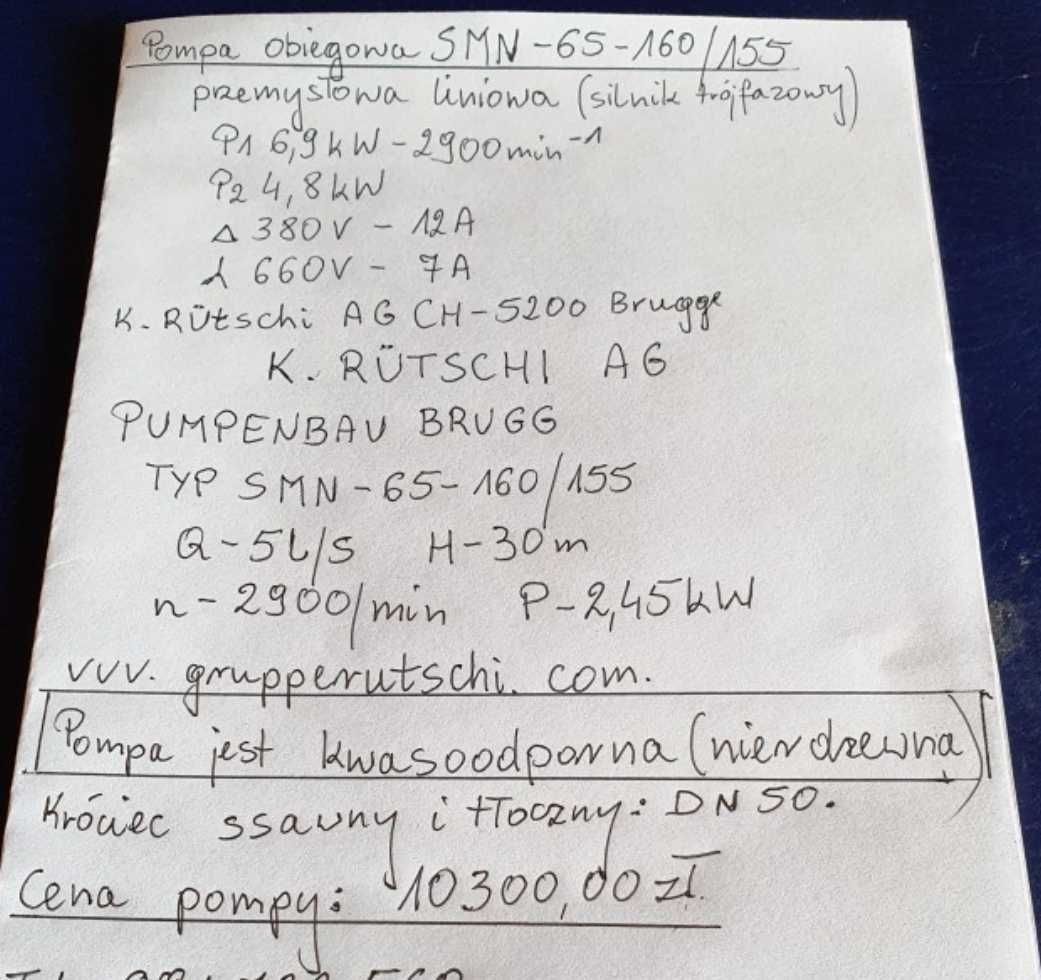 Pompa obiegowa SMN-65-160/155
przemysłowa liniowa (silnik trójfazowy)
P1 6,9kW-2900min⁻¹
P2 4,8kW
Δ 380V - 12A
⅄ 660V - 7A
K. Rütschi AG CH-5200 Brugge
K. RÜTSCHI AG
PUMPENBAU BRUGG
TYP SMN-65-160/155
Q-5l/s H-30m
n-2900/min P-2,45kW
vvv. grupperutschi. com.
Pompa jest kwasoodporna (nierdzewna)
Króciec ssawny i tłoczny: DN 50.
Cena pompy: 10300,00 zł.